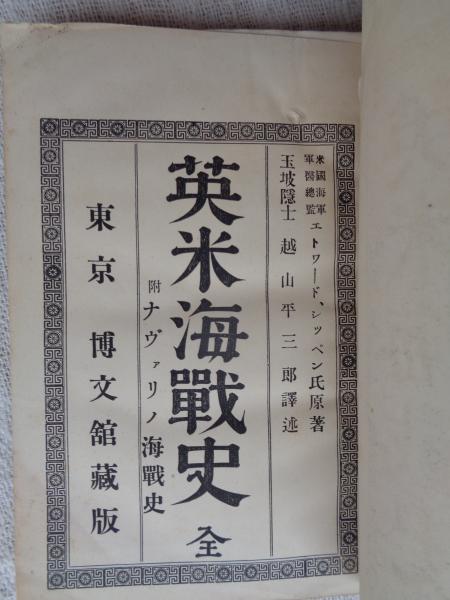 米國海軍軍醫總監 エトワード、シッペン氏原著
玉坡隱士 越山平三郎譯述
英米海戰史 全
附 ナヴァリノ海戰史
東京 博文舘藏版